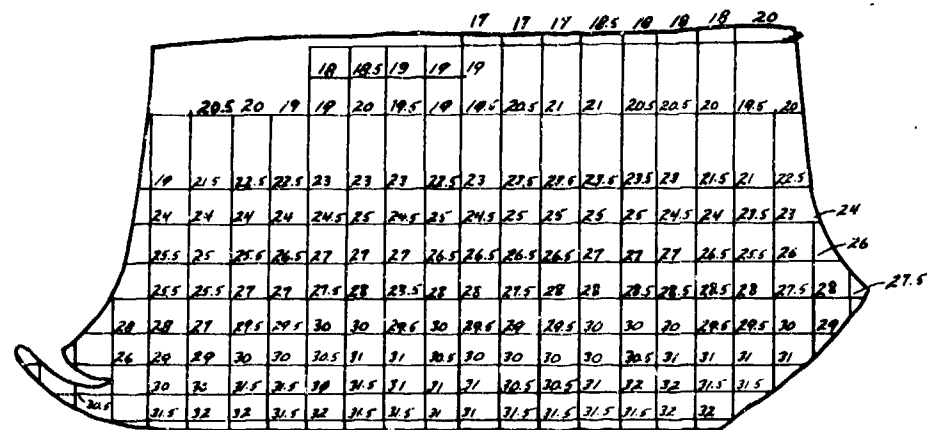 17 17 17 18.5 18 18 18 20
18 18.5 19 19 19
20.5 20 19 19 20 19.5 19 19.5 20.5 21 21 20.5 20.5 20 19.5 20
19 21.5 22.5 22.5 23 23 23 22.5 23 23.5 23.5 23.5 23.5 23 21.5 21 22.5
24 24 24 24 24.5 25 24.5 25 24.5 25 25 25 25 24.5 24 23.5 23 24
25.5 25 25.5 26.5 27 27 27 26.5 26.5 26.5 26.5 27 27 27 26.5 25.5 26 26
25.5 25.5 27 27 27.5 28 28.5 28 28 27.5 28 28 28.5 28.5 28.5 28 27.5 28 27.5
28 28 27 29.5 29.5 30 30 29.5 30 29.5 29 29.5 30 30 30 29.5 29.5 30 29
26 29 29 30 30 30.5 31 31 30.5 30 30 30 30 30.5 31 31 31 31
30.5 30 30 31.5 31.5 31.5 31 31 31 30.5 30.5 31 32 32 31.5 31.5
31.5 32 32 31.5 32 31.5 31.5 31 31 31.5 31.5 31.5 31.5 32 32